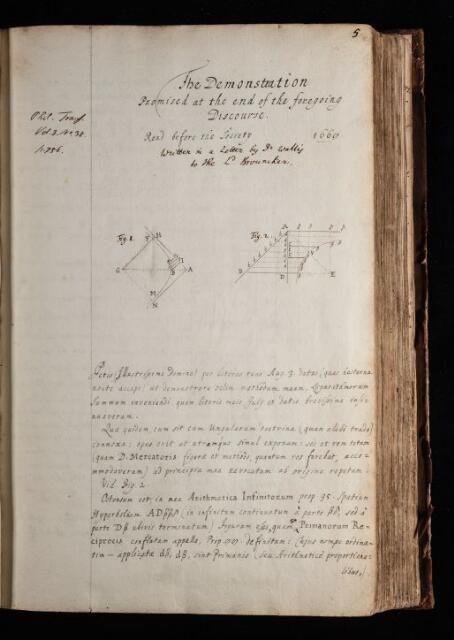 5
The Demonstration
Promised at the end of the foregoing
Discourse.
Phil. Trans.
Vol. 3. No. 38.
p. 756.
Read before the Society 1669
Written in a Letter by Dr Wallis
to the Ld Brouncker.
Fig. 1.
Fig. 2.
(Illustrissime Domine) per literas tuas Aug. 3. datas (quas hesterna
nocte accepi) ut demonstrare velim methodum meam, Logarithmorum
summam inveniendi quam literis meis July 8. datis brevissime
Quo quidem cum sit cum Ungularum doctrina (quam alibi trado)
connexa: opus erit ut utramque simul exponam: sed et rem totam
(quam D. Mercatoris figurae et methodo, quantum res ferebat, acco-
mmodaveram) ad principia mea revocatam ab origine repetam.
Vid. Fig. 2
Ostensum est, in mea Arithmetica Infinitorum prop. 95. Spatium
Hyperbolicum (in infinitum continuatum a parte sed a
parte ubivis terminatum) figuram esse, quam Primanorum Re-
ciprocis conflatam appello, Prop. definitam: Cujus nempe ordina-
tim-applicatae sint Primanis (seu Arithmetice proportiona-
libus,)